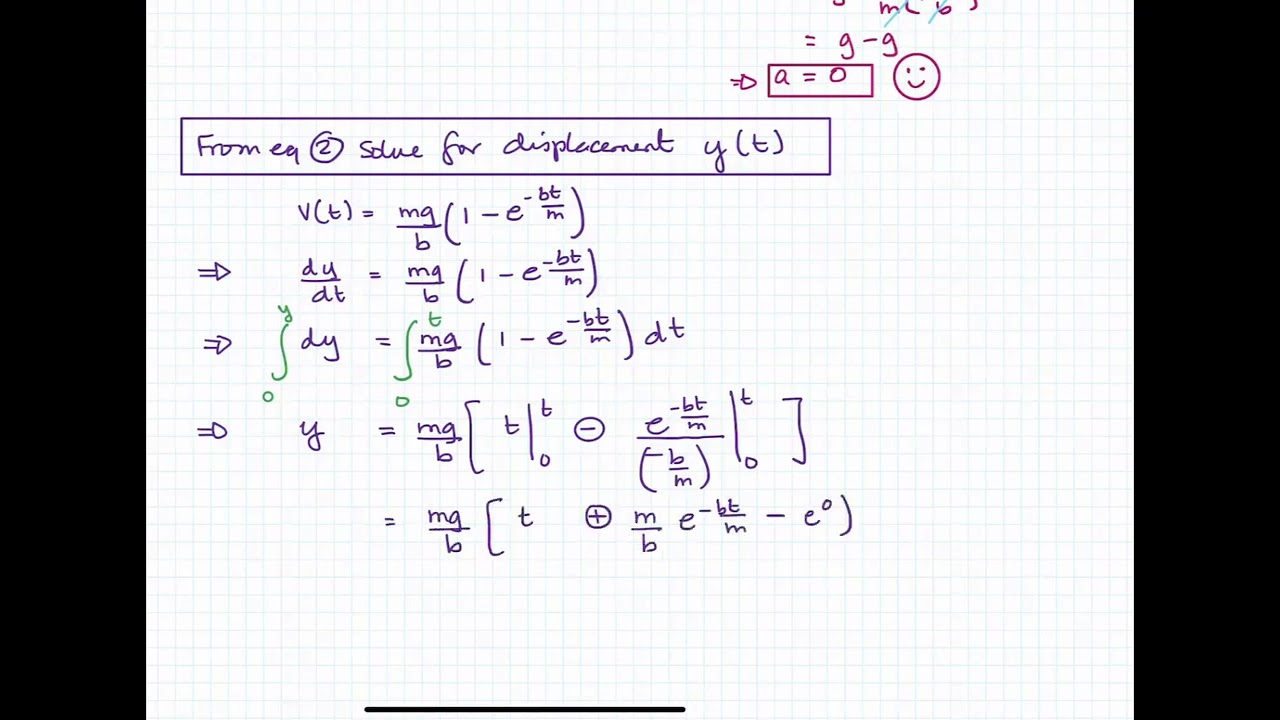 m ( b )
= g - g
⇒ a = 0
From eq ② solve for displacement y(t)
V(t) = mg/b (1 - e^(-bt/m))
⇒ dy/dt = mg/b (1 - e^(-bt/m))
⇒ ∫_0^y dy = ∫_0^t mg/b (1 - e^(-bt/m)) dt
⇒ y = mg/b [ t|_0^t ⊖ e^(-bt/m)/(-b/m) |_0^t ]
= mg/b [ t ⊕ m/b e^(-bt/m) - e^0 )